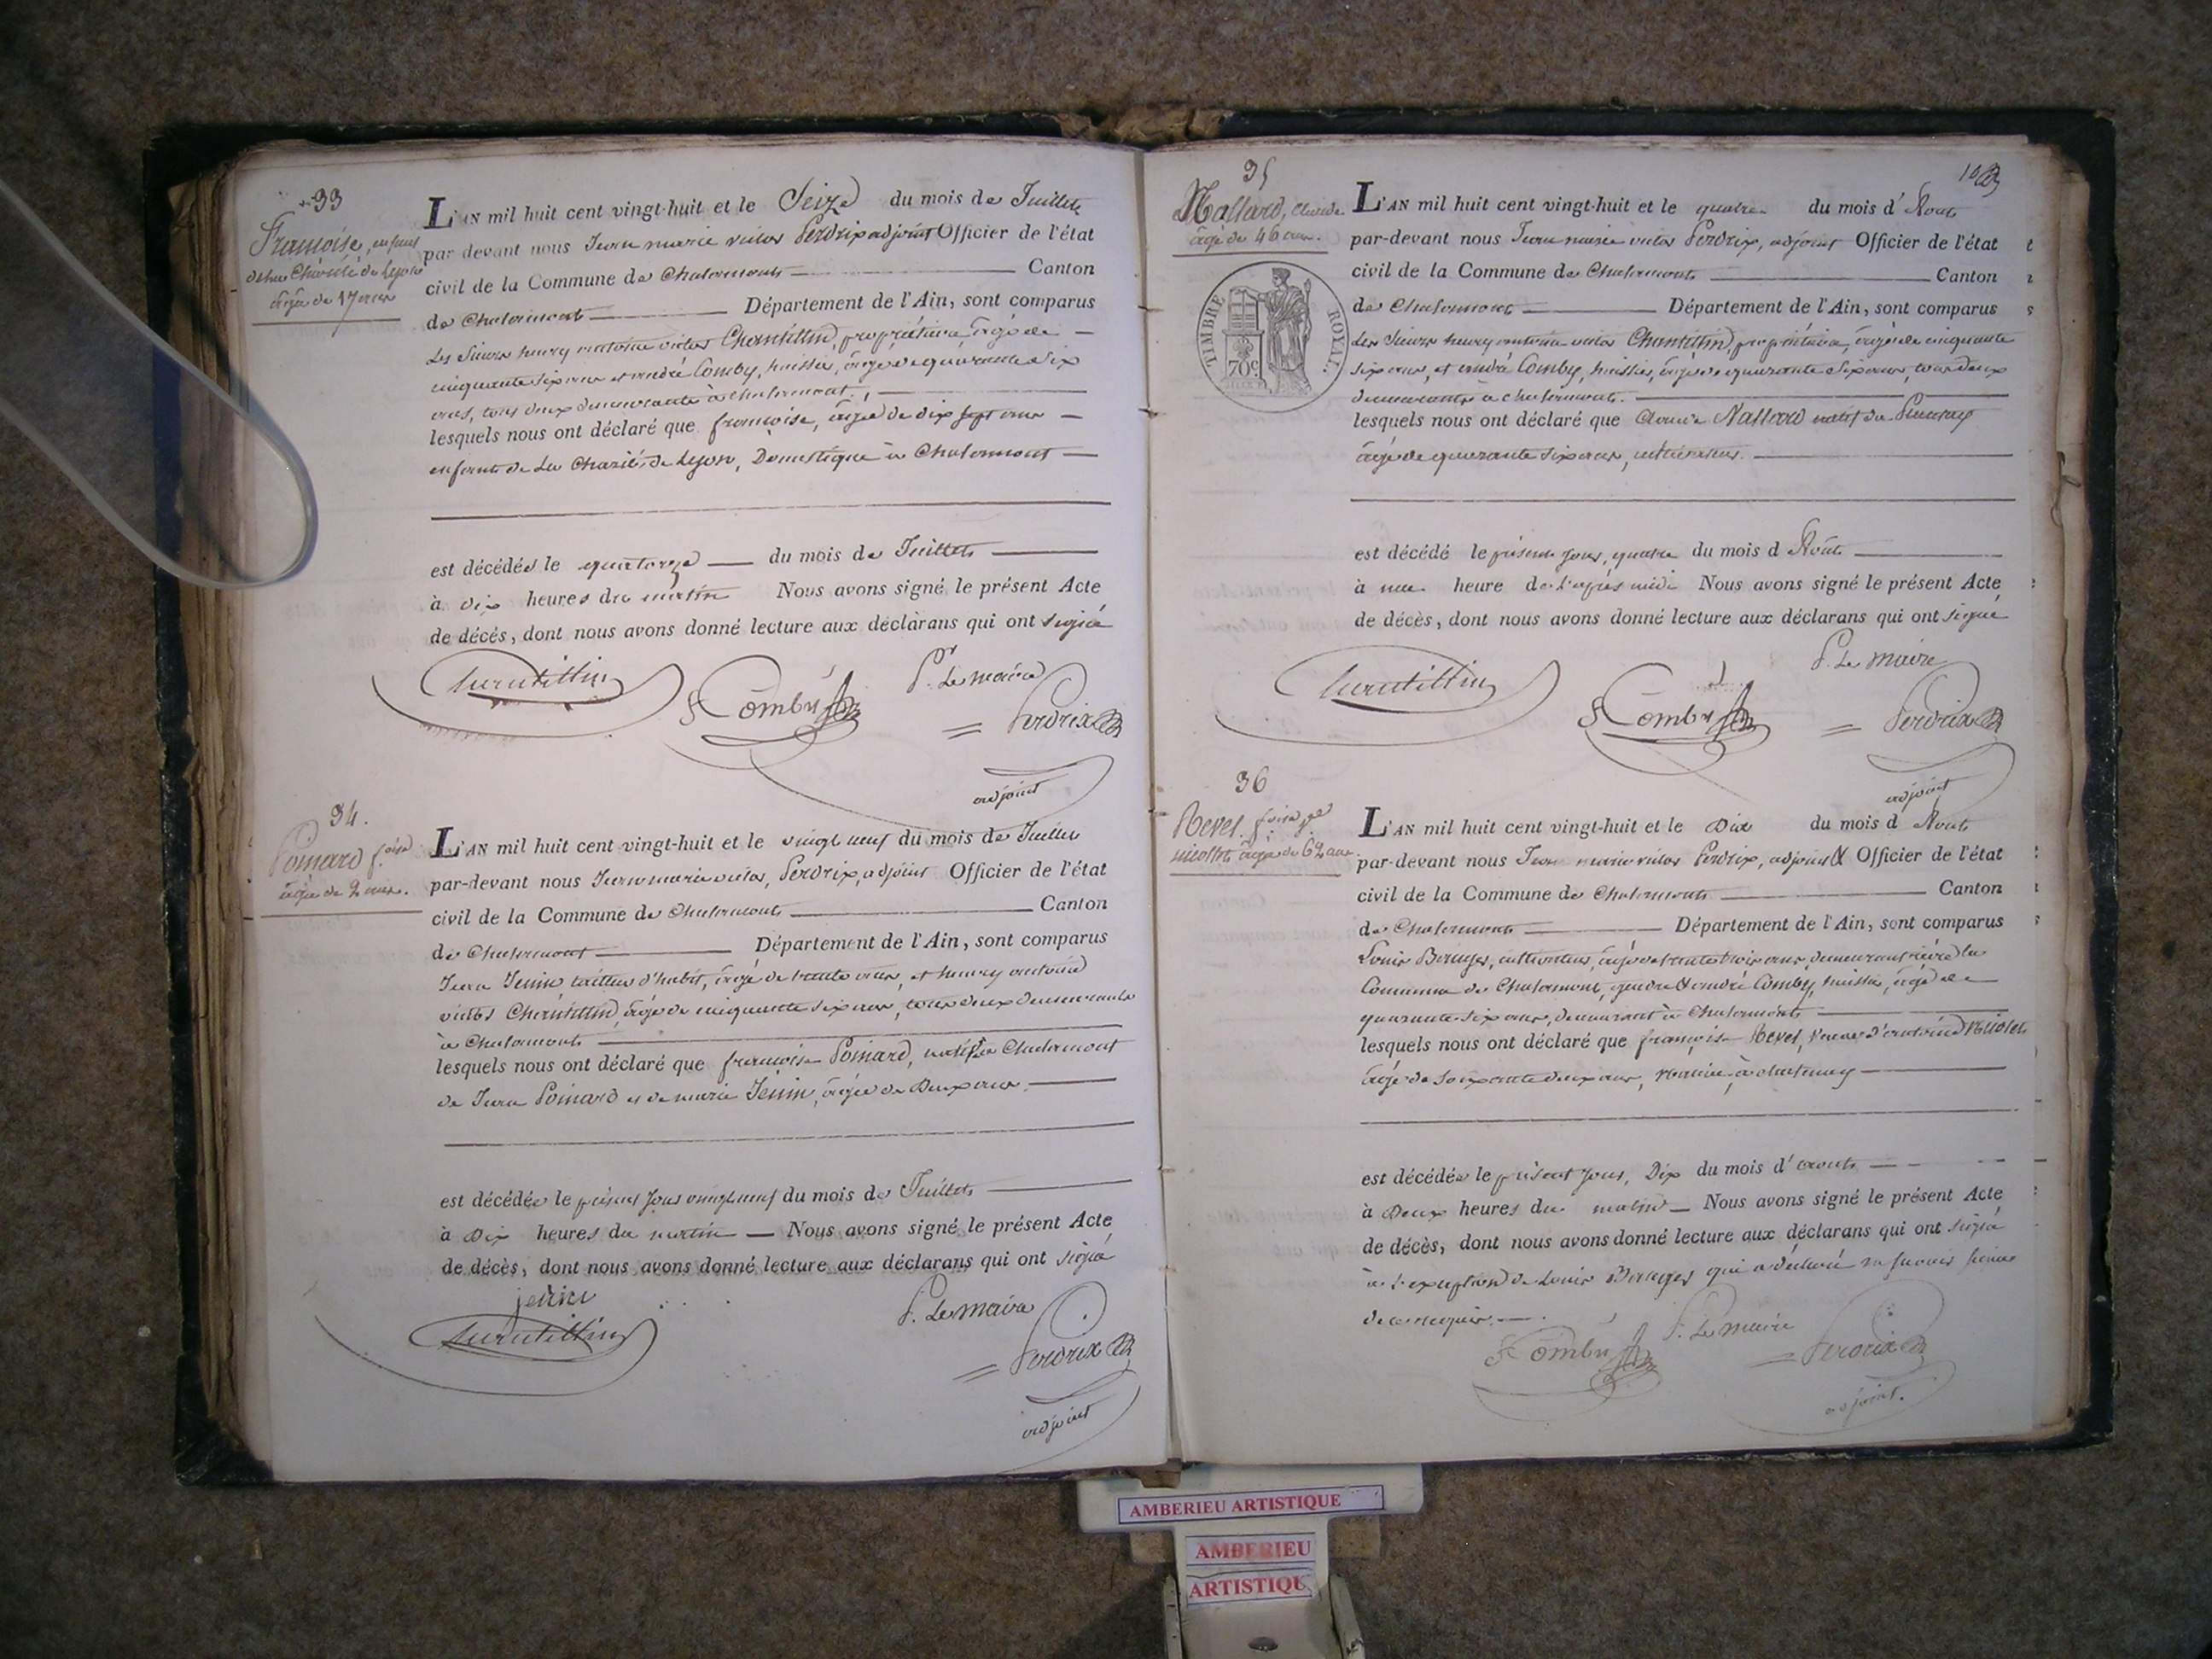 33
Françoise, enfant
de la Charité de Lyon
âgée de 17 ans
L'AN mil huit cent vingt-huit et le Seize du mois de Juillet
par devant nous Jean marie victor Perdrix adjoint Officier de l'état
civil de la Commune de Chalamont Canton
de Chalamont Département de l'Ain, sont comparus
Les Sieurs henry antoine victor Chantillin, propriétaire, âgé de
cinquante six ans et andré Comby, huissier, âgé de quarante six
ans, tous deux demeurants à Chalamont,
lesquels nous ont déclaré que françoise, âgée de dix sept ans
enfant de la Charité de Lyon, Domestique à Chalamont
est décédée le quatorze du mois de Juillet
à dix heures du matin Nous avons signé le présent Acte
de décès, dont nous avons donné lecture aux déclarans qui ont signé
Chantillin Comby P. Le maire
Perdrix
adjoint
34.
Poinard f.oise
âgée de 2 ans.
L'AN mil huit cent vingt-huit et le vingt neuf du mois de Juillet
par-devant nous Jean marie victor, Perdrix, adjoint Officier de l'état
civil de la Commune de Chalamont Canton
de Chalamont Département de l'Ain, sont comparus
Jean Jenin tailleur d'habit, âgé de trente ans, et henry antoine
victor Chantillin, âgé de cinquante six ans, tous deux demeurants
à Chalamont
lesquels nous ont déclaré que françoise Poinard, native de Chalamont
de Jean Poinard et de marie Jenin, âgée de Deux ans.
est décédée le présent Jour vingt neuf du mois de Juillet
à Dix heures du matin Nous avons signé le présent Acte
de décès, dont nous avons donné lecture aux déclarans qui ont signé
jenin
Chantillin P. Le maire
Perdrix
adjoint
35
Nallard, Claude
âgé de 46 ans.
TIMBRE ROYAL
70c
L'AN mil huit cent vingt-huit et le quatre du mois d'Août
par-devant nous Jean marie victor Perdrix, adjoint Officier de l'état
civil de la Commune de Chalamont Canton
de Chalamont Département de l'Ain, sont comparus
Les Sieurs henry antoine victor Chantillin, propriétaire, âgé de cinquante
six ans, et andré Comby, huissier, âgé de quarante six ans, tous deux
demeurants à Chalamont.
lesquels nous ont déclaré que Claude Nallard natif de
âgé de quarante six ans, cultivateur.
est décédé le présent Jour, quatre du mois d Août
à une heure de l'après midi Nous avons signé le présent Acte
de décès, dont nous avons donné lecture aux déclarans qui ont signé
P. Le maire
Chantillin Comby Perdrix
adjoint
36
Revel. f.oise
âgée de 62 ans
L'AN mil huit cent vingt-huit et le Dix du mois d Août
par-devant nous Jean marie victor Perdrix, adjoint Officier de l'état
civil de la Commune de Chalamont Canton
de Chalamont Département de l'Ain, sont comparus
Louis cultivateur, âgé de trente trois ans, demeurant rière la
Commune de Chalamont, gendre & andré Comby, huissier, âgé de
quarante six ans, demeurant à Chalamont
lesquels nous ont déclaré que françoise Revel, veuve d'antoine
âgée de soixante deux ans, native à chatenay
est décédée le présent Jour, Dix du mois d'août
à Deux heures du matin Nous avons signé le présent Acte
de décès, dont nous avons donné lecture aux déclarans qui ont signé
à l'exception de Louis qui a déclaré ne savoir signer
de ce requis.
Comby P. Le maire
Perdrix
adjoint.
AMBERIEU ARTISTIQUE
AMBERIEU
ARTISTIQU